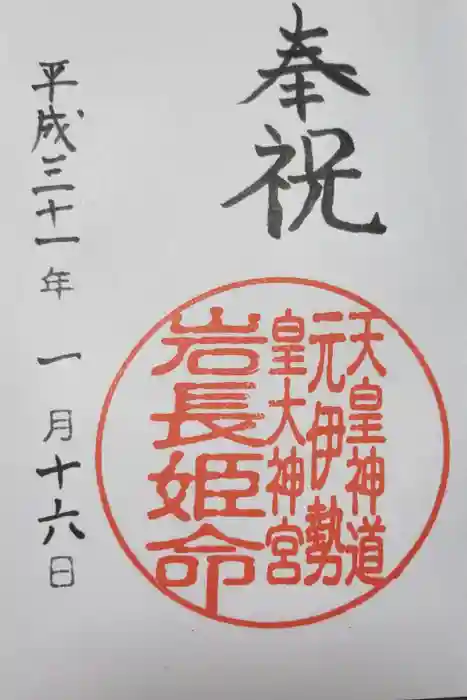 奉祝
天皇神道
元伊勢
皇大神宮
岩長姫命
平成三十一年一月十六日